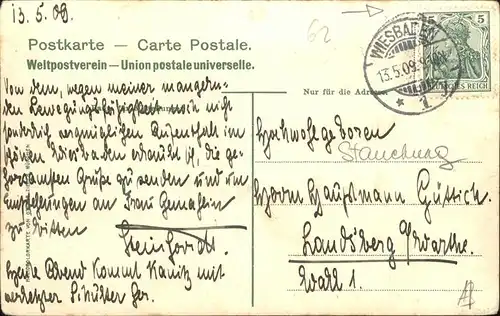 13. 5. 09.
62
Postkarte — Carte Postale.
Weltpostverein — Union postale universelle.
WIESBADEN
13.5.09.
* 1
5
DEUTSCHES REICH
Nur für die Adresse
Von dem, wegen meiner mangeln-
den Bewegungsfähigkeit noch nicht
sonderlich vergnüglichen Aufenthalt im
schönen Wiesbaden erlaubt ich, die ge-
horsamsten Grüße zu senden und um
Empfehlungen an Frau Gemahlin
zu bitten
Heute Abend kommt Kanitz mit
verletzter Schulter her.
Hochwohlgeboren
Stauchung
Herrn Hauptmann Güttich
Landsberg a/Warthe.
Wall 1.